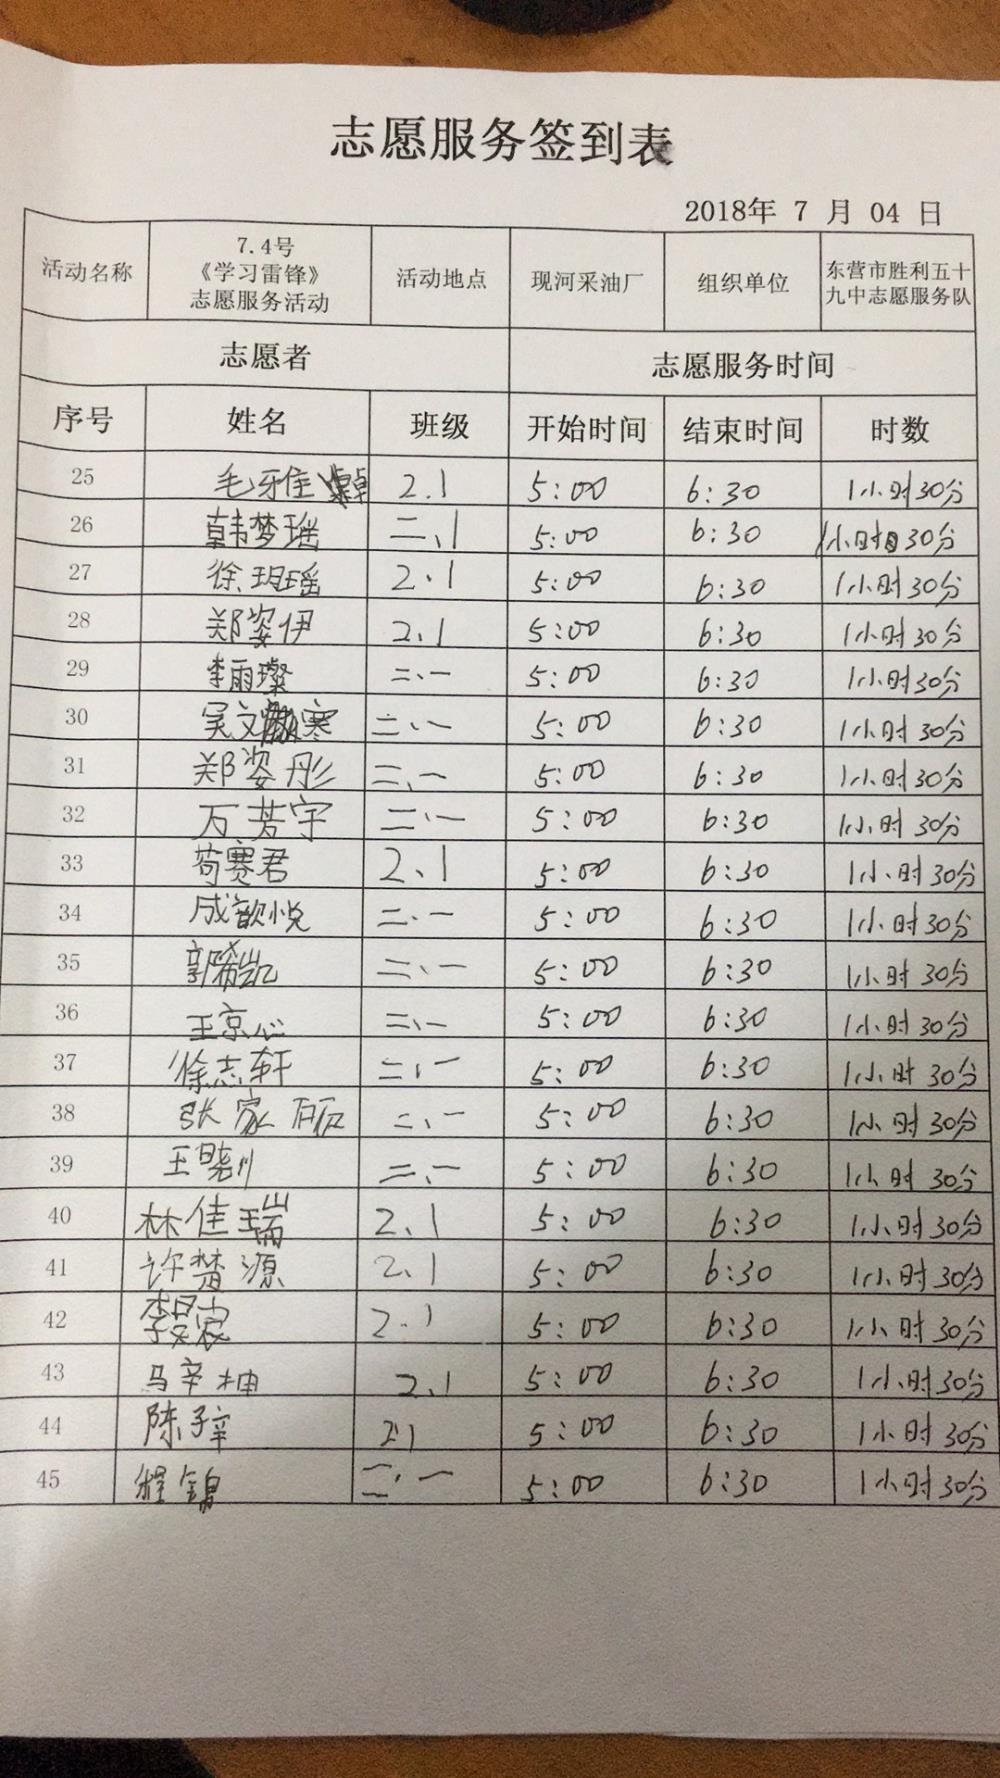 志愿服务签到表
2018年 7 月 04 日
活动名称 7.4号《学习雷锋》志愿服务活动 活动地点 现河采油厂 组织单位 东营市胜利五十九中志愿服务队
志愿者 志愿服务时间
序号 姓名 班级 开始时间 结束时间 时数
25 毛雅佳 2.1 5:00 6:30 1小时30分
26 韩梦瑶 二、1 5:00 6:30 1小时30分
27 徐玥瑶 2、1 5:00 6:30 1小时30分
28 郑姿伊 2.1 5:00 6:30 1小时30分
29 李雨璨 二、一 5:00 6:30 1小时30分
30 吴文寒 二、一 5:00 6:30 1小时30分
31 郑姿彤 二、一 5:00 6:30 1小时30分
32 万芳宇 二、一 5:00 6:30 1小时30分
33 苟赛君 2、1 5:00 6:30 1小时30分
34 成歆悦 二、一 5:00 6:30 1小时30分
35 郭希凯 二、一 5:00 6:30 1小时30分
36 王京心 二、一 5:00 6:30 1小时30分
37 徐志轩 二、一 5:00 6:30 1小时30分
38 张家 二、一 5:00 6:30 1小时30分
39 王晓 二、一 5:00 6:30 1小时30分
40 林佳瑞 2、1 5:00 6:30 1小时30分
41 许楚源 2、1 5:00 6:30 1小时30分
42 2.1 5:00 6:30 1小时30分
43 马辛坤 2.1 5:00 6:30 1小时30分
44 陈梓 2.1 5:00 6:30 1小时30分
45 程锦 二、一 5:00 6:30 1小时30分